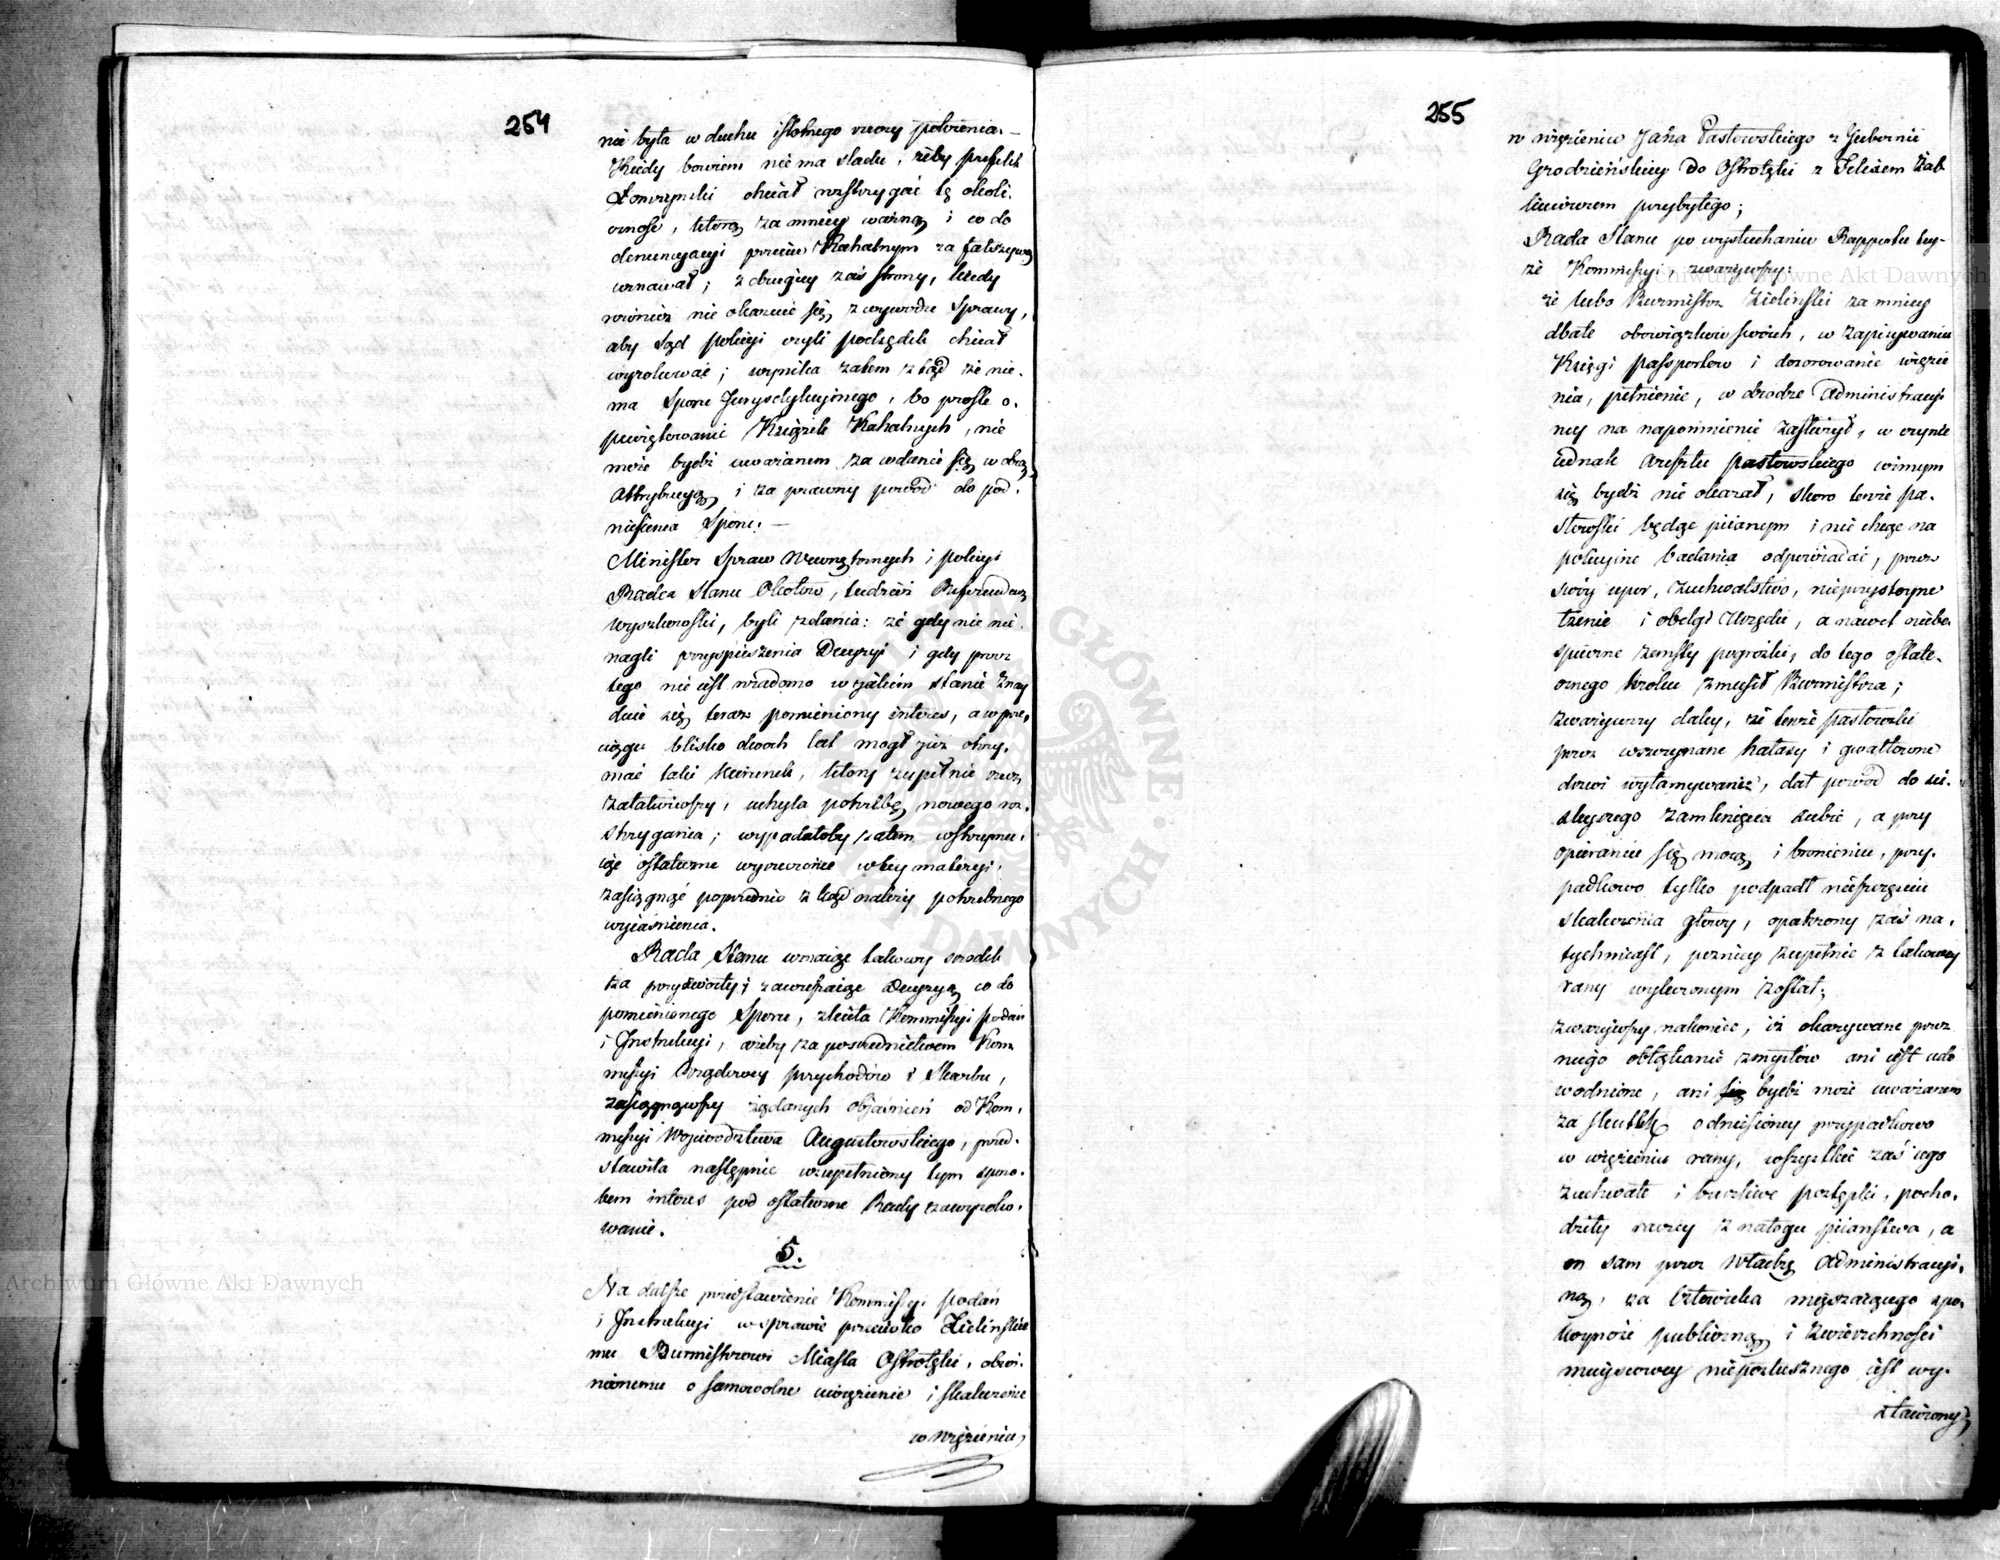 254
nie była w duchu istotnego rzeczy położenia. —
Kiedy bowiem nie ma śladu, żeby prefekt
Łomżyński chciał rozstrzygać tę okoli-
czność, którą za mniey ważną i co do
denuncyacyi przeciw Kahalnym za fałszywą
uznawał; z drugiey zaś strony, kiedy
również nie okazuie się z wywodu sprawy,
aby Sąd policyi czyli podsędek chciał
wyrokować; wynika zatem ztąd że nie-
ma Sporu Jurysdykcyjnego, bo proste o-
pieczętowanie Książek Kahalnych, nie
może bydź uważanem za wdanie się w obcą
Attrybucyą i za prawny powód do pod-
niesienia Sporu. —
Minister Spraw Wewnętrznych i policyi
Radca Stanu Okołow, tudzież Referendarz
Wyszkowski, byli zdania: że gdy nie nie
nagli przyspieszenia Decyzyi i gdy przez
tego nie iest wiadomo w iakim stanie znay
duie się teraz pomieniony interes, a w prze-
ciągu blisko dwoch lat mogł już otrzy-
mać taki kierunek, ktory zupełnie rzecz
załatwiwszy, uchyla potrzebę nowego roz-
strzygania; wypadałoby zatem wstrzymu-
iąc ostateczne wyrzeczenie w tey materyi,
zasięgnąć poprzednio z kąd należy potrzebnego
wyiaśnienia.
Rada Stanu uznaiąc takowy srodek
za przyzwoity i zawieszaiąc Decyzyą co do
pomienionego Sporu, zleciła Kommissyi podań
i Instrukcyi, ażeby za pośrednictwem Kom
missyi Rządowey przychodów i Skarbu,
zasięgnąwszy żądanych objaśnień od Kom-
missyi Woiewództwa Augustowskiego, przed-
stawiła następnie uzupełniony tym sposo-
bem interes pod ostateczne Rady zawyroko-
wanie.
5.
Na dalsze przedstawienie Kommissyi podań
i Instrukcyi w sprawie przeciwko Zielińskie
mu Burmistrzowi Miasta Ostrołęki, obwi-
nionemu o samowolne uwięzienie i skaleczenie
w więzieniu
255
w więzieniu Jana Pastowskiego z Gubernii
Grodzieńskiey do Ostrołęki z Felixem
przybyłego;
Rada Stanu po wysłuchaniu Rapportu tey-
że Kommissyi, zważywszy:
że lubo Burmistrz Zieliński za mniey
dbałe obowiązków swoich, w zapisywaniu
Księgi passportow i dozorowanie więzie
nia, pełnienie, w drodze Administracyi
ney na napomnienie zasłużył, w czynie
iednak Aresztu Pastowskiego winnym
się bydź nie okazał, skoro tenże Pa-
stowski będąc pijanym i nie chcąc na
policyine badania odpowiadać, przez
swóy upor, zuchwalstwo, nieprzystoyne
łżenie i obelgi Urzędu, a nawet niebe-
spieczne zemsty pogrożki, do tego ostate-
cznego kroku zmusił Burmistrza;
zważywszy daley, że tenże Pastowski
przez wszczynane hałasy i gwałtowne
drzwi wyłamywanie, dał powod do ści-
sleyszego zamknięcia siebie, a przy
opieraniu się mocą i bronieniu, przy-
padkowo tylko podpadł nieszczęściu
skaleczenia głowy, opatrzony zaś na-
tychmiast, pozniey zupełnie z takowey
rany wyleczonym został;
zważywszy nakoniec, iż okazywane przez
niego obłąkanie zmysłów ani iest udo
wodnione, ani bydź może uważanem
za skutek odniesioney przypadkowo
w więzieniu rany, wszystkie zaś iego
zuchwałe i burzliwe postępki, pocho-
dziły raczey z nałogu pijaństwa, a
on sam przez Władzę Administracyi-
ną, za człowieka mięszaiącego spo-
koyność publiczną i zwierzchności
mieyscowey nieposłusznego iest wy-
stawiony;
Archiwum Główne Akt Dawnych
Archiwum Główne Akt Dawnych
ARCHIWUM GŁÓWNE AKT DAWNYCH